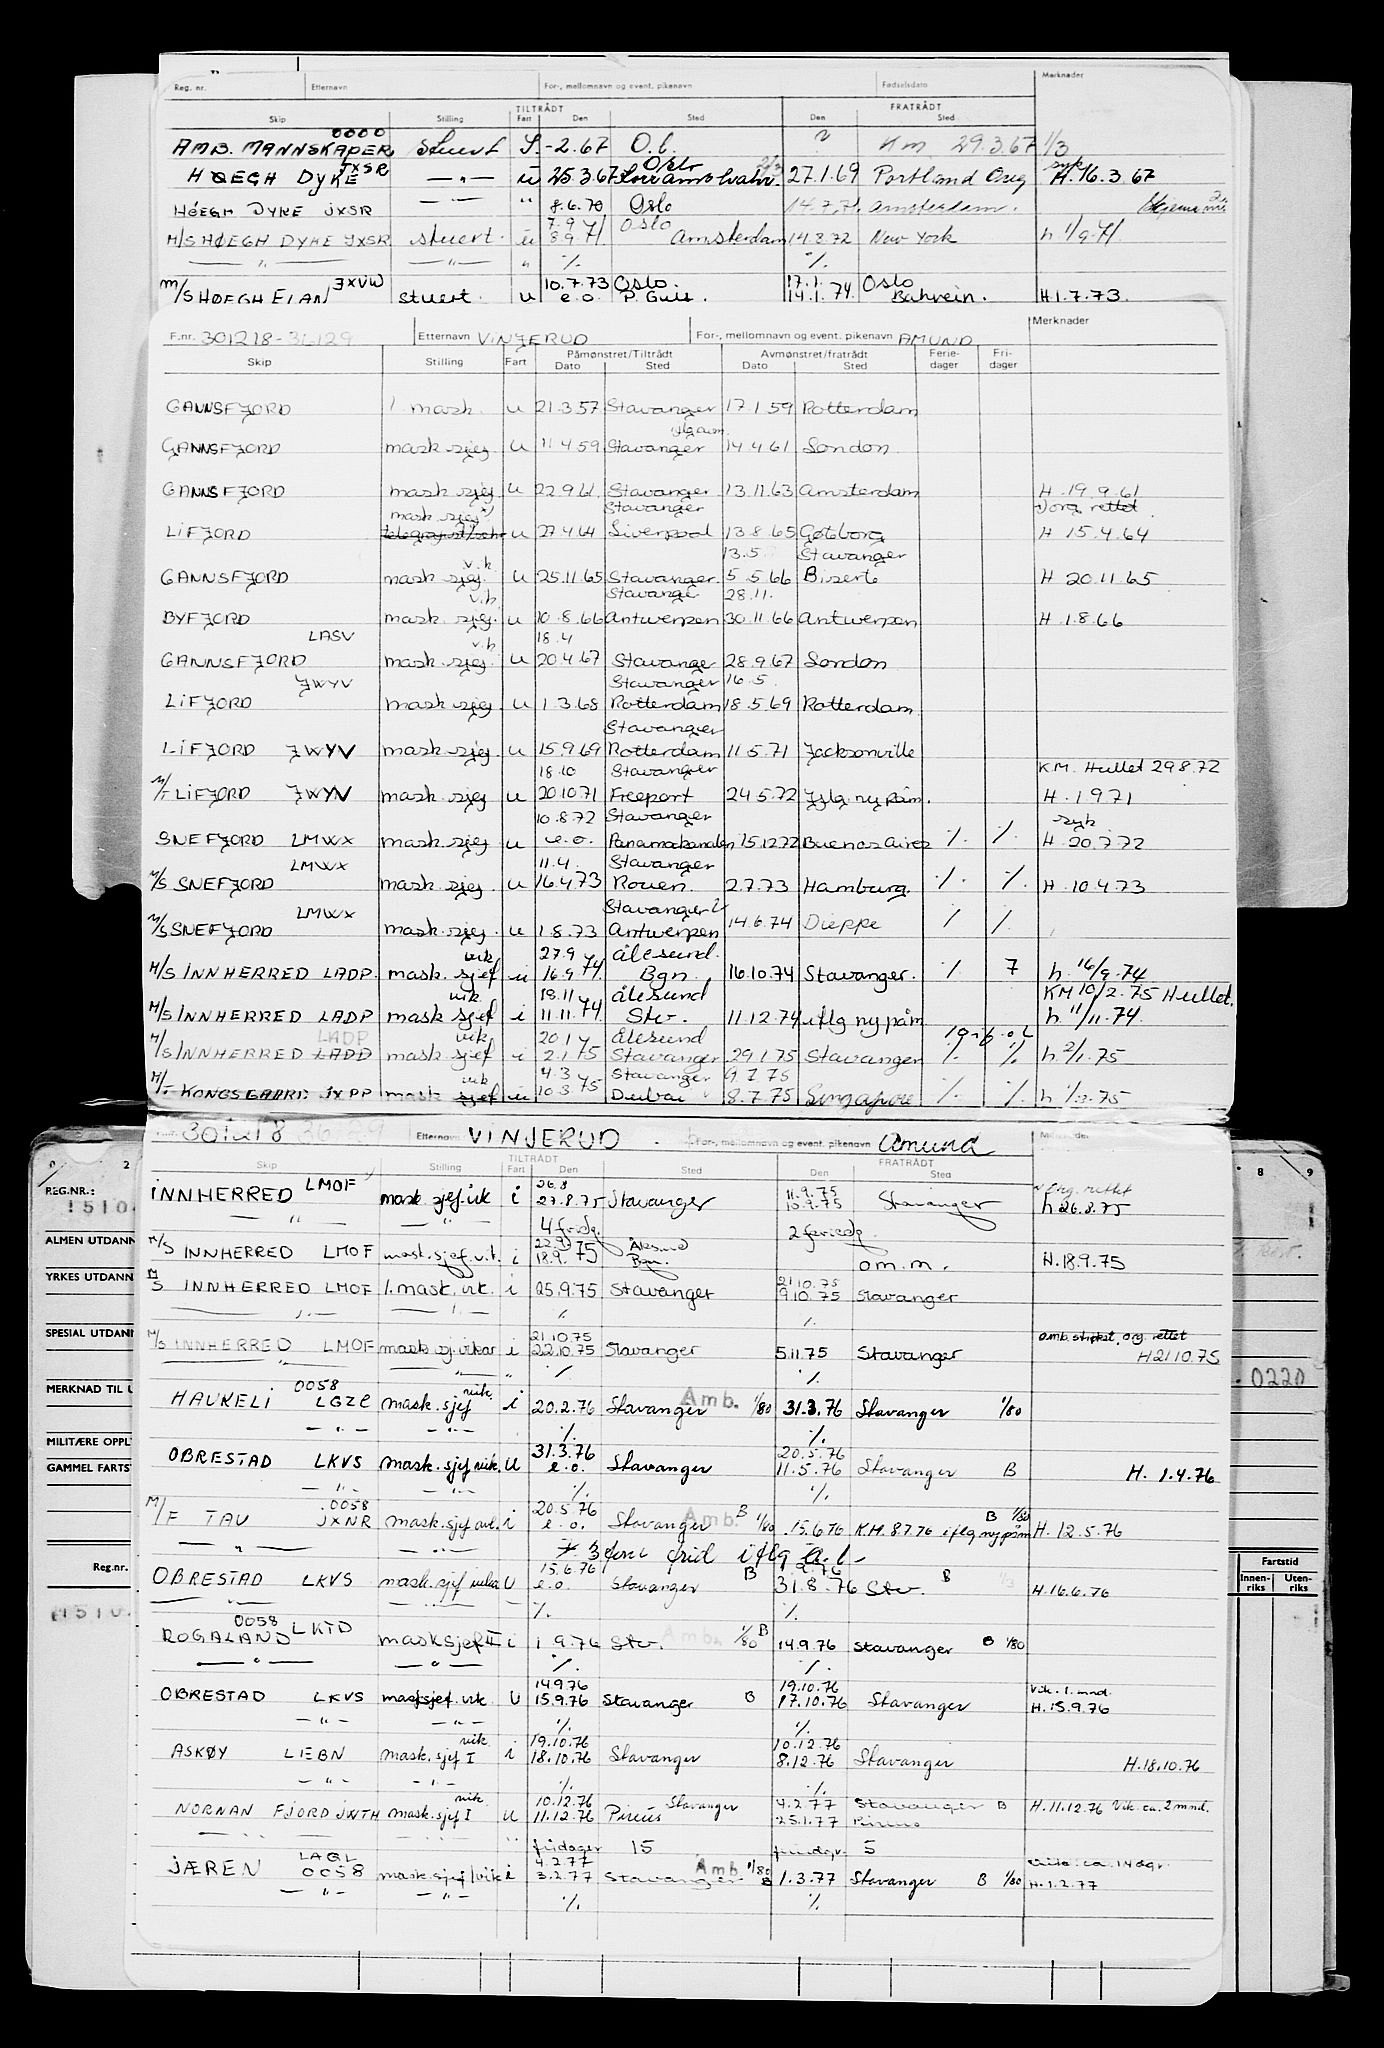 Reg. nr. Etternavn For-, mellomnavn og event. pikenavn Fødselsdato Merknader
TILTRÅDT FRATRÅDT
Skip Stilling Fart Den Sted Den Sted
0000
AMB. MANNSKAPER stuert S. -2.67 O.l. 29.3.67 1/3
JXSR Oslo syk
HØEGH DYKE — " — u 25.3.67 27.1.69 Portland Oreg H. 16.3.67
HÖEGH DYKE JXSR — " — " 8.6.70 Oslo 14.7.71 Amsterdam.
7.9 Oslo
M/S HØEGH DYKE JXSR stuert. u 8.9.71 Amsterdam 14.3.72 New York h 1/9-71.
— " — — " — " % %
JXVW 10.7.73 Oslo. 17.1. Oslo
M/S HØEGH ELAN stuert. u e.o. P. Gulf. 14.1.74. Bahrein. H 1.7.73.
F.nr. 301218-36129 Etternavn VINJERUD For-, mellomnavn og event. pikenavn AMUND Merknader
Påmønstret/Tiltrådt Avmønstret/fratrådt Ferie- Fri-
Skip Stilling Fart Dato Sted Dato Sted dager dager
GANNSFJORD 1 mask. u 21.3.57 Stavanger 17.1.59 Rotterdam
GANNSFJORD mask sjef u 11.4.59 Stavanger 14.4.61 London
GANNSFJORD mask sjef u 22.9.61 Stavanger 13.11.63 Amsterdam H. 19.9.61
mask sjef Stavanger rettet
LIFJORD u 27.4.64 Liverpool 13.8.65 Gøtborg H 15.4.64
13.5. Stavanger
v.k
GANNSFJORD mask sjef. u 25.11.65 Stavanger. 5.5.66 Biserte H 20.11.65
v.k Stavanger 28.11.
BYFJORD mask. sjef. u 10.8.66 Antwerpen 30.11.66 Antwerpen H. 1.8.66
LASV v.k 18.4
GANNSFJORD mask. sjef. u 20.4.67 Stavanger 28.9.67 London
JWYV Stavanger 16.5.
LIFJORD mask sjef u 1.3.68 Rotterdam 18.5.69 Rotterdam
Stavanger
LIFJORD JWYV mask sjef. u 15.9.69 Rotterdam 11.5.71 Jacksonville
18.10 Stavanger KM. Hullet 29.8.72
M/T LIFJORD JWYV mask. sjef u 20.10.71 Freeport 24.5.72 iflg. ny påm. H. 1.9.71
10.8.72 Stavanger syk
SNEFJORD LMWX mask. sjef u e.o. Panamakanalen 15.12.72 Buenos Aires % % H 20.7.72
LMWX 11.4. Stavanger
M/S SNEFJORD mask. sjef. u 16.4.73 Rouen. 2.7.73 Hamburg. % % H. 10.4.73
LMWX Stavanger
M/S SNEFJORD mask. sjef. u 1.8.73 Antwerpen 14.6.74 Dieppe % %
vik. 27.9 Ålesund.
M/S INNHERRED LADP. mask. sjef u 16.9.74. Bgn. 16.10.74 Stavanger. % 7 h. 16/9.74
vik. 18.11 Ålesund KM 10/2.75 Hullet.
M/S INNHERRED LADP mask sjef i 11.11.74. Stv-. 11.12.74 iflg ny påm h. 11/11.74.
LADP vik. 20.1 Ålesund
M/S INNHERRED LADP mask. sjef i 2.1.75 Stavanger 29.1.75 Stavanger % % h 2/1.75
vik 4.3 Stavanger 9.7.75
M/T KONGSGAARD JXPP mask sjef u 10.3.75 Dubai 8.7.75 Singapore % % h 1/3.75
301218 36 29 Etternavn VINJERUD For-, mellomnavn og event. pikenavn Amund
TILTRÅDT FRATRÅDT
Skip Stilling Fart Den Sted Den Sted
26.8 11.9.75 rettet
INNHERRED LMOF mask. sjef. vik i 27.8.75 Stavanger 10.9.75 Stavanger h 26.8.75
— " — — " — 4 fridg. 2 feriedg.
22.9 Ålesund
M/S INNHERRED LMOF mask. sjef. vik. i 18.9.75 Bgn. o m. m. H.18.9.75
21.10.75
M/S INNHERRED LMOF 1. mask. vik. i 25.9.75 Stavanger 9.10.75 Stavanger
— " — — " — % %
21.10.75 amb. strøket, org. rettet
M/S INNHERRED LMOF mask. sj. vikar i 22.10.75 Stavanger 5.11.75 Stavanger H 21.10.75
— " — — " — % %
0058 vik.
HAUKELI LGZC mask. sjef i 20.2.76 Stavanger Amb. 1/80 31.3.76 Stavanger 1/80
— " — — " — % %
31.3.76 20.5.76
OBRESTAD LKVS mask. sjef vik. U e.o. Stavanger 11.5.76 Stavanger B H. 1.4.76
— " — — " — % %
.0058 20.5.76
M/F TAU JXNR mask. sjef avl. i e.o. Stavanger Amb. B 1/80 15.6.76 KM. 8.7.76 iflg ny påm B 1/80 H. 12.5.76
— " — — " — frid iflg a.l-
15.6.76
OBRESTAD LKVS mask. sjef vikar U e.o. Stavanger B 31.8.76 Stv. B H.16.6.76
— " — — " — % %
0058
ROGALAND LKTD mask sjef II i 1.9.76 Stv. Amb. 1/80 B 14.9.76 Stavanger B 1/80
— " — — " — % %
14.9.76 19.10.76 Vik. 1. mnd.
OBRESTAD LKVS mask sjef. vik. U 15.9.76 Stavanger B 17.10.76 Stavanger H.15.9.76
— " — — " — % %
vik. 19.10.76 10.12.76
ASKØY LEBN mask. sjef I i 18.10.76 Stavanger 8.12.76 Stavanger H.18.10.76
— " — — " — % %
vik. 10.12.76 Stavanger 4.2.77 Stavanger B
NORNAN FJORD JWTH mask. sjef I u 11.12.76 Pireus 25.1.77 Pireus H.11.12.76 Vik. ca. 2 mnd.
fridager 15 fridgr. 5
LAGL 4.2.77 vik. ca. 14 dgr.
JÆREN 0058 mask. sjef vik i 3.2.77 Stavanger Amb. 1/80 B 1.3.77 Stavanger B 1/80 H. 1.2.77
— " — — " — % %
REG.NR.:
ALMEN UTDANN
YRKES UTDANN
SPESIAL UTDANN
MERKNAD TIL U
MILITÆRE OPPL
GAMMEL FARTS
Reg.nr.
8 9
0220
Fartstid
Innen- Uten-
riks riks